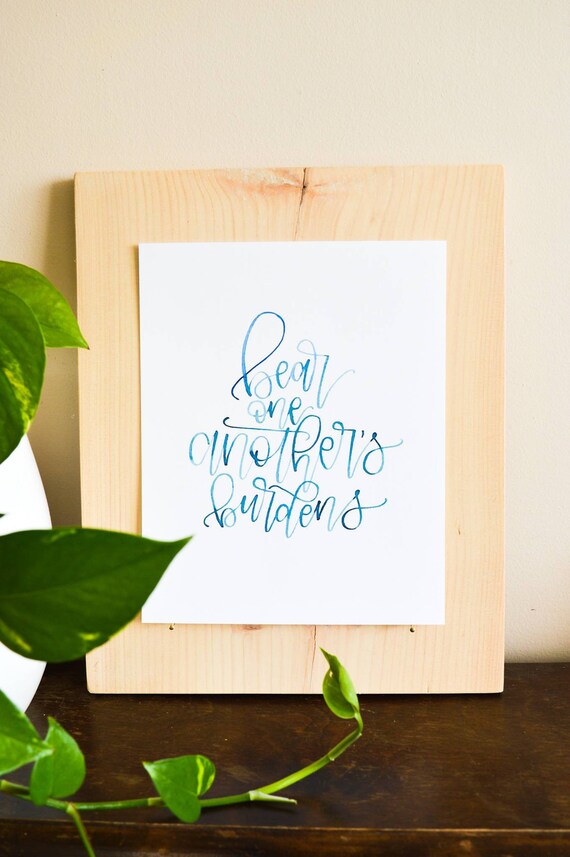 bear
one
another's
burdens